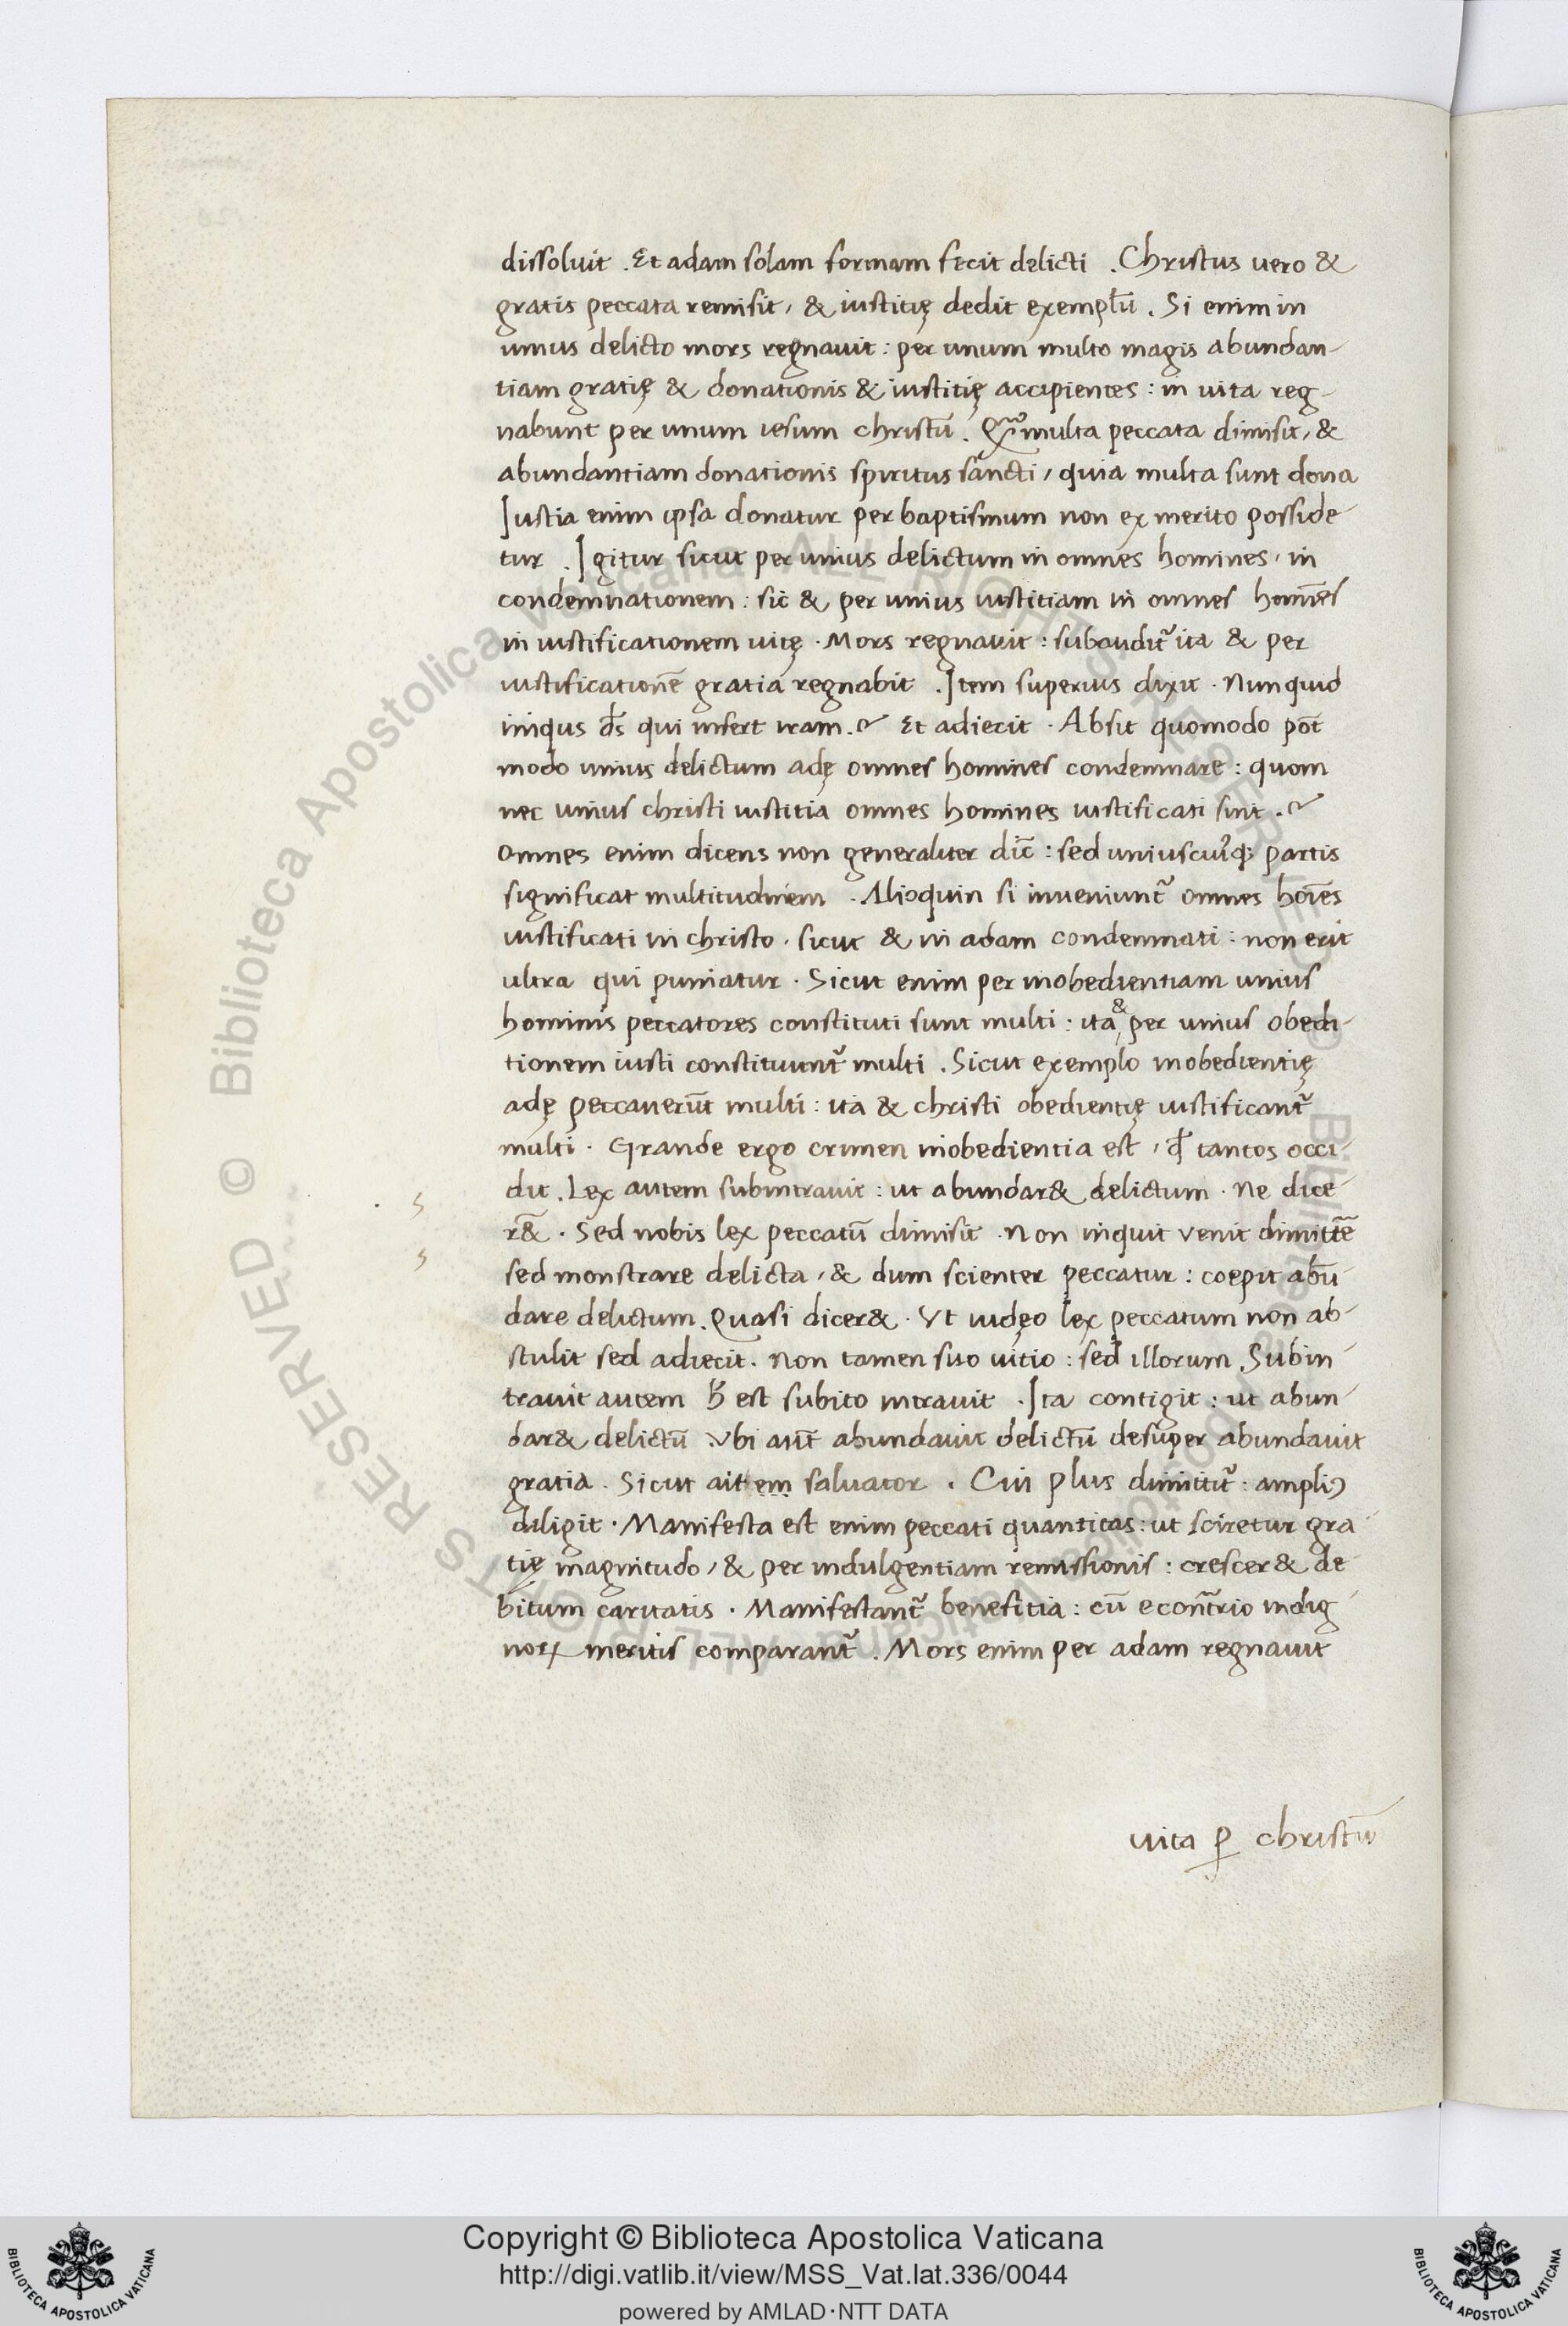 dissoluit . Et adam solam formam fecit delicti . Christus vero &
gratis peccata remisit, & iustitię dedit exemplū . Si enim in
unius delicto mors regnauit : per unum multo magis abundan-
tiam gratię & donationis & iustitię accipientes : in uita reg-
nabunt per unum iesum christū . multa peccata dimisit, &
abundantiam donationis spiritus sancti, quia multa sunt dona
Iustia enim ipsa donatur per baptismum non ex merito posside-
tur . Igitur sicut per unius delictum in omnes homines, in
condemnationem : sic & per unius iustitiam in omnes homēs
in iustificationem uitę . Mors regnauit : subaudit̄ ita & per
iustificationē gratia regnabit . Item superius dixit . Nunquid
iniqus d̄s qui infert iram . Et adiecit . Absit quomodo pōt
modo unius delictum adę omnes homines condemnare : quom
nec unius christi iustitia omnes homines iustificati sint .
Omnes enim dicens non generaliter dic̄ : sed uniuscuiq; partis
significat multitudinem . Alioquin si inueniunt̄ omnes hoīes
iustificati in christo, sicut & in adam condemnati : non erit
ultra qui puniatur . Sicut enim per inobedientiam unius
hominis peccatores constituti sunt multi : ita & per unius obedi-
tionem iusti constituunt̄ multi . Sicut exemplo inobedientię
adę peccauerūt multi : ita & christi obedientię iustificant̄
multi . Grande ergo crimen inobedientia est, qđ tantos occi-
dit . Lex autem subintrauit : ut abundar& delictum . Ne dice-
r& . Sed nobis lex peccatū dimisit . Non inquit venit dimittē
sed monstrare delicta, & dum scienter peccatur : coepit abū-
dare delictum . Quasi dicer& . Vt uidęo lex peccatum non ab-
stulit sed adiecit . Non tamen suo uitio : sed illorum . Subin-
trauit autem est subito intrauit . Ita contigit : ut abun-
dar& delictū . Vbi aūt abundauit delictū desuper abundauit
gratia . Sicut aittem saluator . Cui plus dimittit̄ : ampli9
diligit . Manifesta est enim peccati quantitas : ut sciretur gra-
tię magnitudo, & per indulgentiam remissionis : crescer& de-
bitum caritatis . Manifestant̄ benefitia : cū e contrrio indig-
noꝝ meritis comparant̄ . Mors enim per adam regnauit
uita ꝑ christū
© Biblioteca Apostolica Vaticana ALL RIGHTS RESERVED
Copyright © Biblioteca Apostolica Vaticana
http://digi.vatlib.it/view/MSS_Vat.lat.336/0044
powered by AMLAD·NTT DATA
BIBLIOTECA APOSTOLICA VATICANA
BIBLIOTECA APOSTOLICA VATICANA